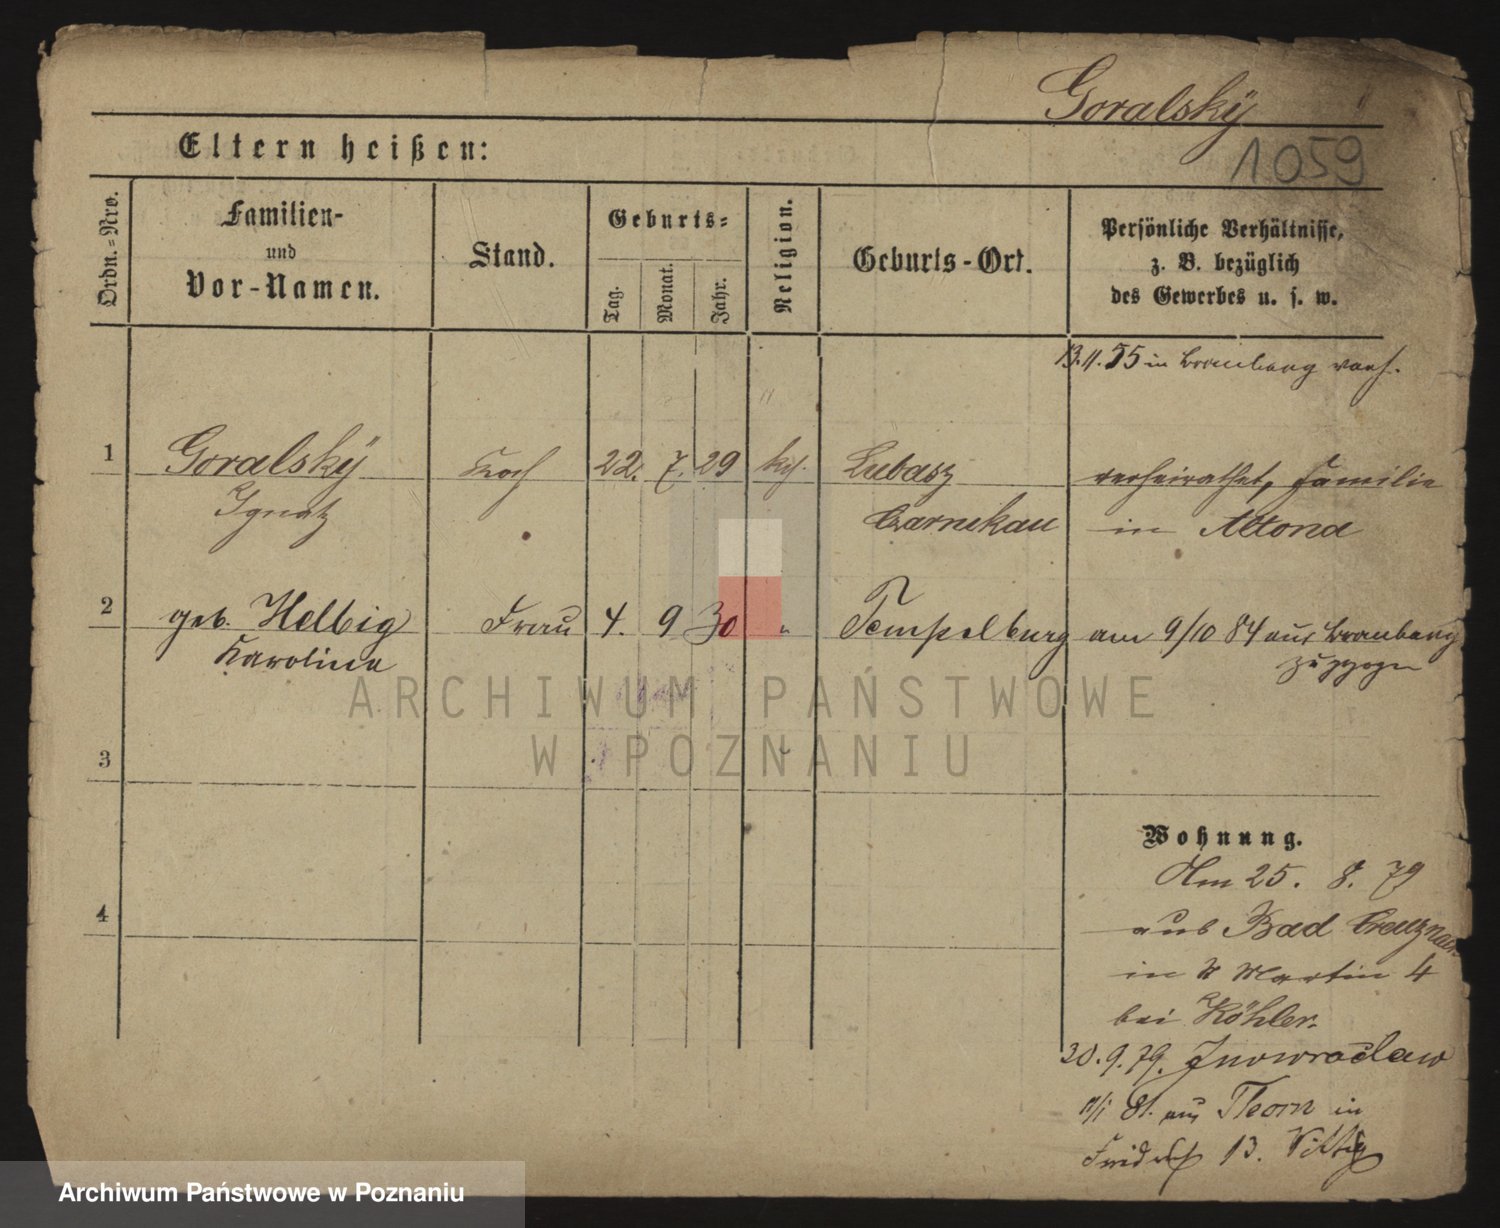 Goralský
1059
Eltern heißen:
Ordn.=Nro.
Familien-
und
Vor-Namen.
Stand.
Geburts=
Tag.
Monat.
Jahr.
Religion.
Geburts-Ort.
Persönliche Verhältnisse,
z. B. bezüglich
des Gewerbes u. s. w.
13.11.55 in Bromberg verh.
1 Goralský Koch 22. 7. 29 kth. Lubasz verheirathet, Familie
Ignatz Czarnikau in Altona
2 geb. Helbig Frau 4. 9 30 " Tempelburg am 9/10 84 aus Bromberg
Karoline zugezogen
ARCHIWUM PAŃSTWOWE
W POZNANIU
3
Wohnung.
Am 25. 8. 79
4
aus Bad Creuznach
in St Martin 4
bei Köhler.
30. 9. 79. Inowraclaw
81. aus Thorn in
13.
Archiwum Państwowe w Poznaniu